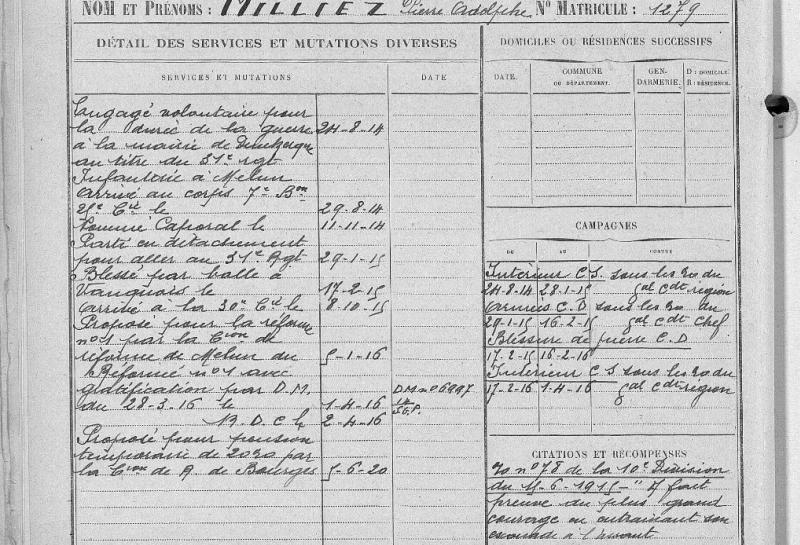 NOM ET PRÉNOMS : MILLIEZ Pierre Adolphe N° MATRICULE : 1279
DÉTAIL DES SERVICES ET MUTATIONS DIVERSES
SERVICES ET MUTATIONS DATE
Engagé volontaire pour
la durée de la guerre 24-8-14
à la mairie de Dunkerque
au titre du 31e rgt
Infanterie à Melun
Arrivé au corps 7e Bon
25e Cie le 29-8-14
Nommé Caporal le 11-11-14
Parti en détachement
pour aller au 31e Rgt 29-1-15
Blessé par balle à
Vauquois le 17-2-15
Arrivé à la 30e Cie le 8-10-15
Proposé pour la réforme
n°1 par la Con de
réforme de Melun du 5-1-16
Réformé n°1 avec
gratification par D.M. D.M. n° 6997
du 28-3-16 le 1-4-16
R.D.C le 2-4-16
Proposé pour pension
temporaire de 20% par
la Con de R. de Bourges 5-6-20
DOMICILES OU RÉSIDENCES SUCCESSIFS
DATE. COMMUNE OU DÉPARTEMENT. GEN-DARMERIE. D : DOMICILE R : RÉSIDENCE.
CAMPAGNES
DU AU CONTRE
Intérieur C.S. sous les ro du
24-8-14 28-1-15 gal Cdt région
Armées C.D sous les ro du
29-1-15 16-2-15 gal Cdt Chef
Blessure de guerre C.D
17-2-15 16-2-16
Intérieur C.S sous les ro du
17-2-16 1-4-16 gal Cdt région
CITATIONS ET RÉCOMPENSES
n° 78 de la 10e Division
du 11-6-1915 - " A fait
preuve du plus grand
courage en entrainant son
escouade à l'assaut